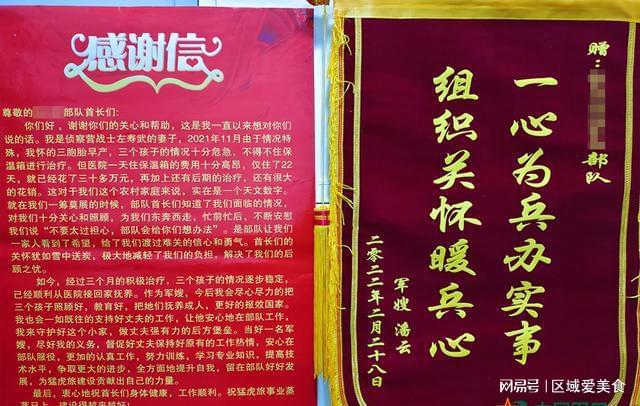 感谢信
尊敬的 部队首长们：
你们好，谢谢你们的关心和帮助，这是我一直以来想对你们
说的话。我是侦察营战士左寿武的妻子，2021年11月由于情况特
殊，我怀的三胞胎早产，三个孩子的情况十分危急，不得不住保
温箱进行治疗。但医院一天住保温箱的费用十分高昂，仅住了22
天，就已经花了三十多万元，再加上还有后期的治疗，还有很大
的花销。这对于我们这个农村家庭来说，实在是一个天文数字。
就在我们一筹莫展的时候，部队首长们知道了我们面临的情况，
对我们十分关心和照顾，为我们东奔西走，忙前忙后，不断安慰
我们说“不要太过担心，部队会给你们想办法”。是部队让我们
一家人看到了希望，给了我们渡过难关的信心和勇气。首长们的
关怀犹如雪中送炭，极大地减轻了我们的负担，解决了我们的后
顾之忧。
如今，经过三个月的积极治疗，三个孩子的情况逐步稳定，
已经顺利从医院接回家抚养。作为军嫂，今后我会尽心尽力的把
三个孩子照顾好，教育好，把她们抚养成人，更好的报效国家。
我也会一如既往的支持好丈夫的工作，让他安心地在部队工作，
我来守护好这个小家，做丈夫强有力的后方堡垒。当好一名军
嫂，尽好我的义务，督促好丈夫保持好原有的工作热情，安心在
部队服役，更加的认真工作，努力训练，学习专业知识，提高技
术水平，争取更大的进步，全方面地提升自我，留在部队好好发
展，为猛虎旅建设贡献出自己的力量。
最后，衷心地祝首长们身体健康，工作顺利。祝猛虎旅事业蒸
蒸日上，建设得越来越好！
赠：
部队
一心为兵办实事
组织关怀暖兵心
军嫂 潘云
二零二二年二月二十八日
网易号 | 区域爱美食